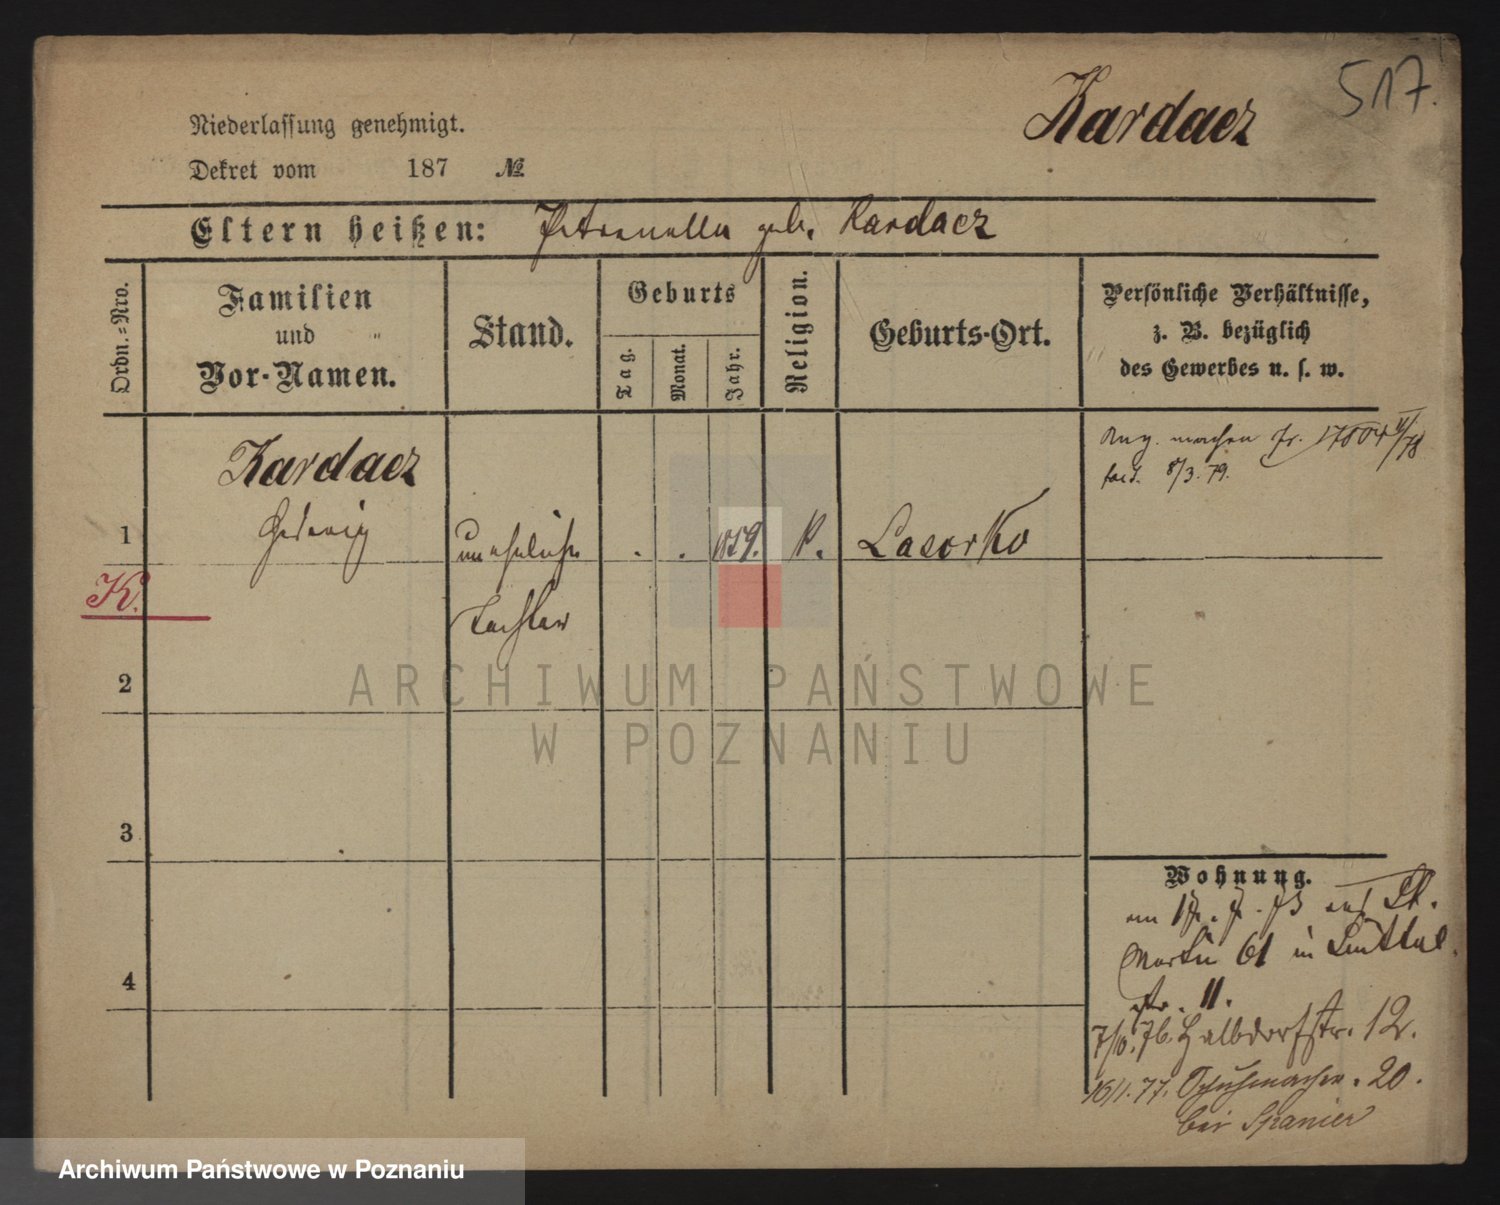 Kardacz
517.
Niederlassung genehmigt.
Dekret vom 187 №
Eltern heißen: Petronella geb. Kardacz
Ordn.-Nro.
Familien
und
Vor-Namen.
Stand.
Geburts
Tag.
Monat.
Jahr.
Religion.
Geburts-Ort.
Persönliche Verhältnisse,
z. B. bezüglich
des Gewerbes u. s. w.
Kardacz
1 Hedwig uneheliche . . 1859. K. Lasorko
Tochter
8/3. 79.
K.
2
3
4
Wohnung.
am 17. 7. 73 auf St.
Martin 61 in
str. 11.
7/10. 76. Halbdorfstr. 12.
16/1. 77. Schuhmacher. 20.
bei Spanier
ARCHIWUM PAŃSTWOWE
W POZNANIU
Archiwum Państwowe w Poznaniu